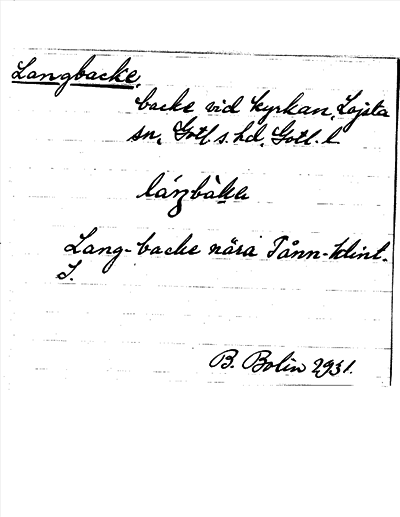 Langbacke,
backe vid kyrkan, Lojsta
sn, Gotl s. hd, Gotl. l
Lang-backe nära Tånn-klint.
B. Bolin 1931.